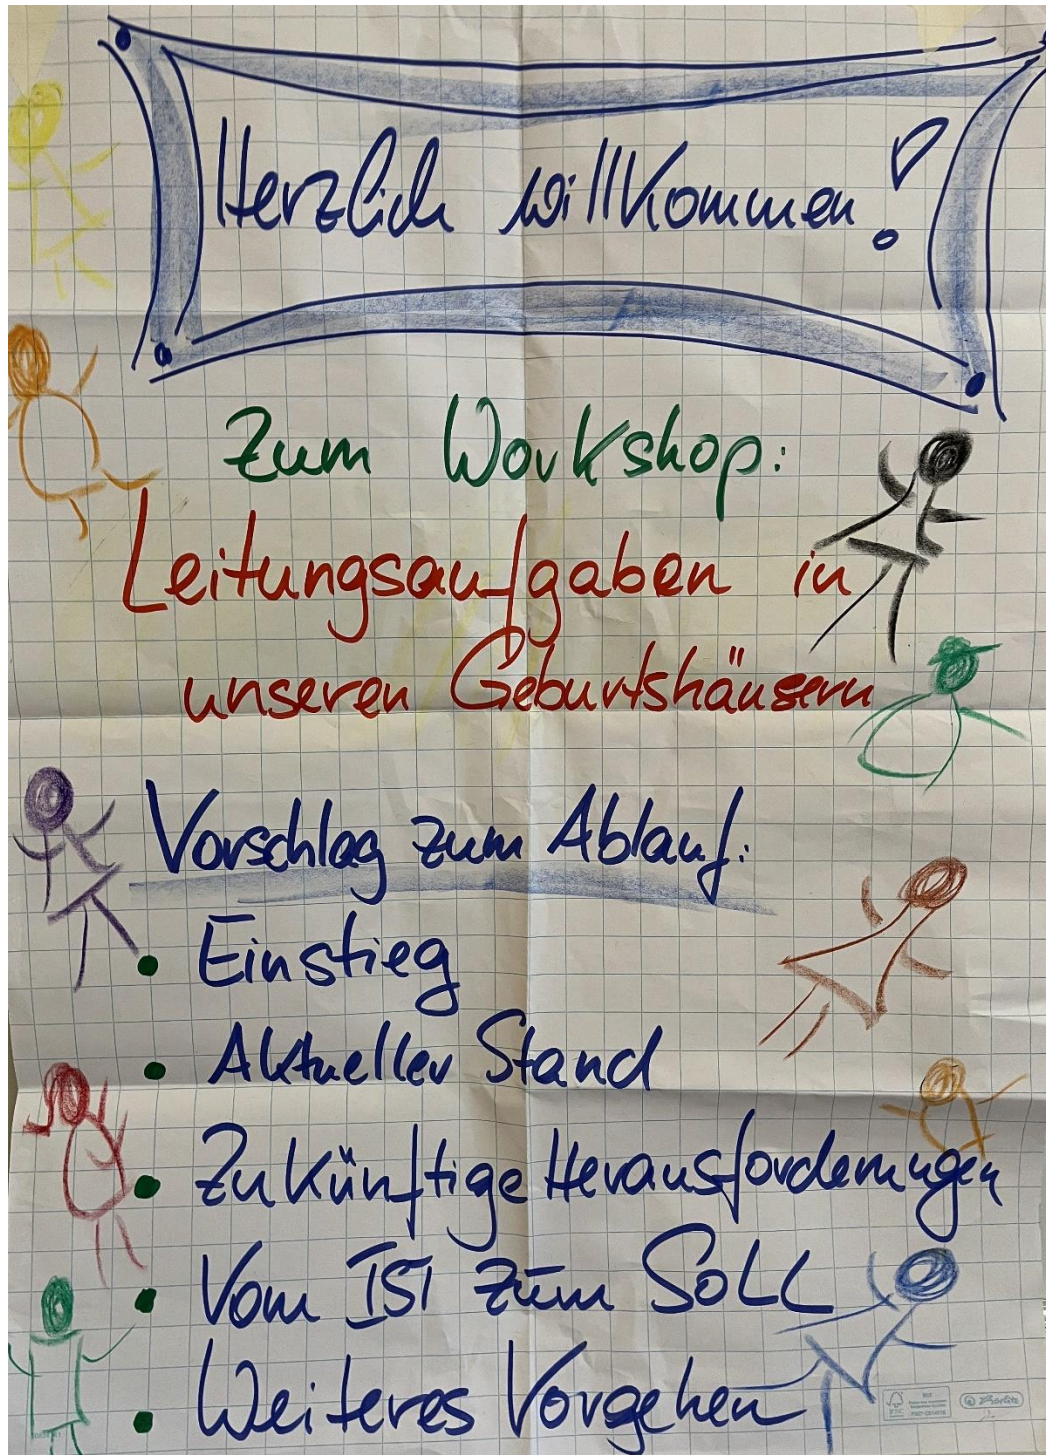 Herzlich willkommen!
Zum Workshop:
Leitungsaufgaben in
unseren Geburtshäusern
Vorschlag zum Ablauf:
• Einstieg
• Aktueller Stand
• Zukünftige Herausforderungen
• Vom IST zum SOLL
• Weiteres Vorgehen
FSC